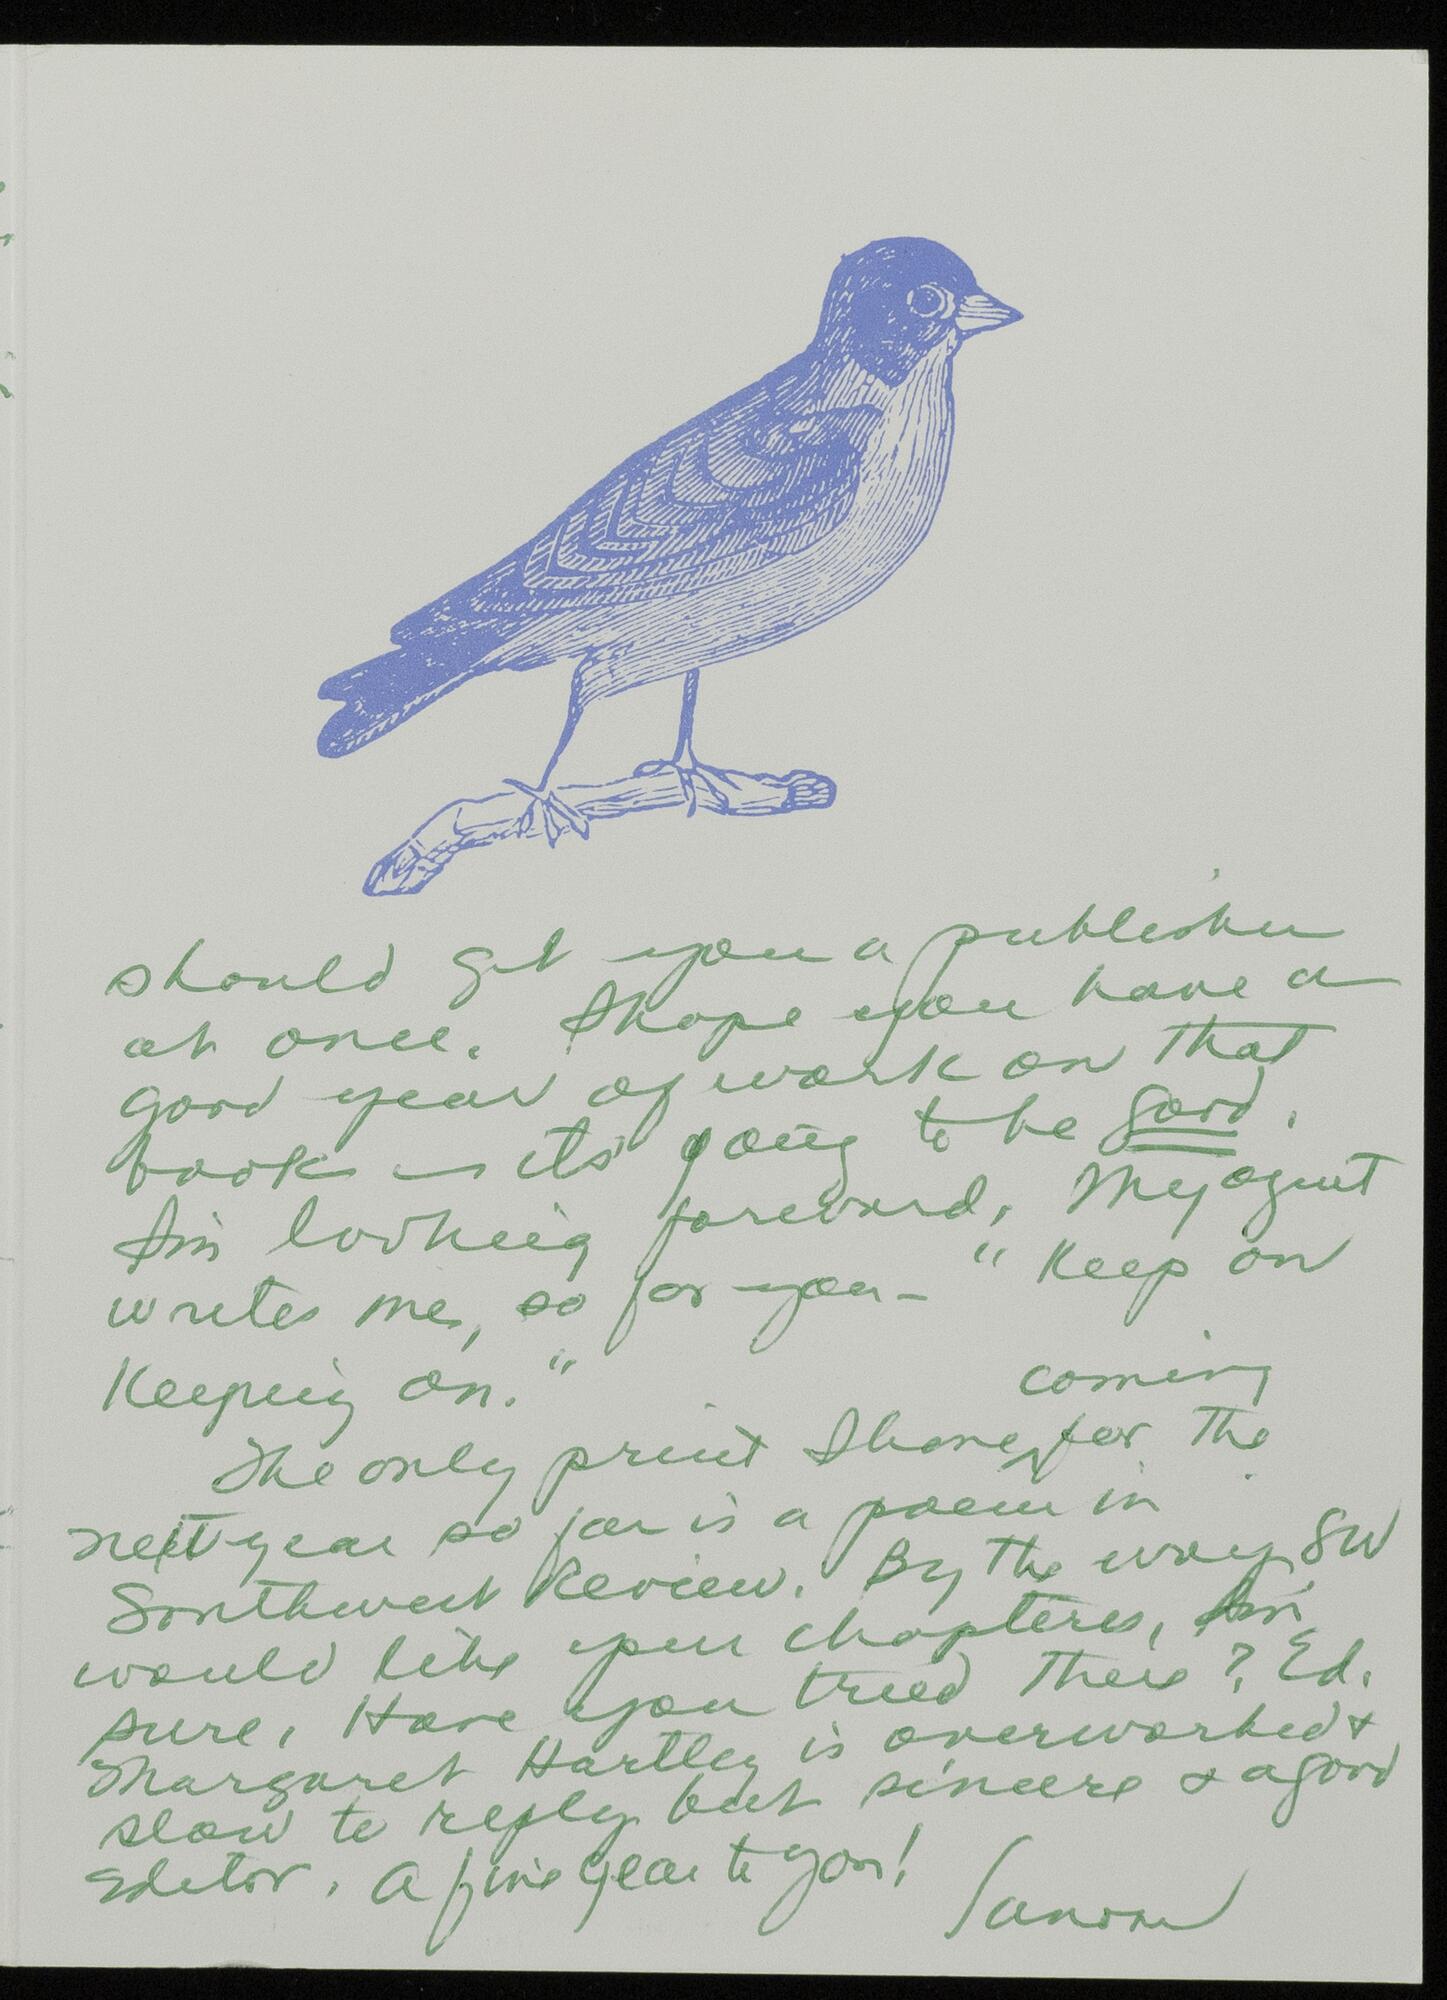 should get you a publisher
at once. I hope you have a
good year of work on that
book – its going to be good.
I'm looking foreward. My agent
writes me, so for you – "Keep on
Keeping on."
coming
The only print I have for the
next year so far is a poem in
Southwest Review. By the way SW
would like your chapters, I'm
sure. Have you tried there? Ed.
Margaret Hartley is overworked &
slow to reply but sincere & a good
Editor. A fine year to you!